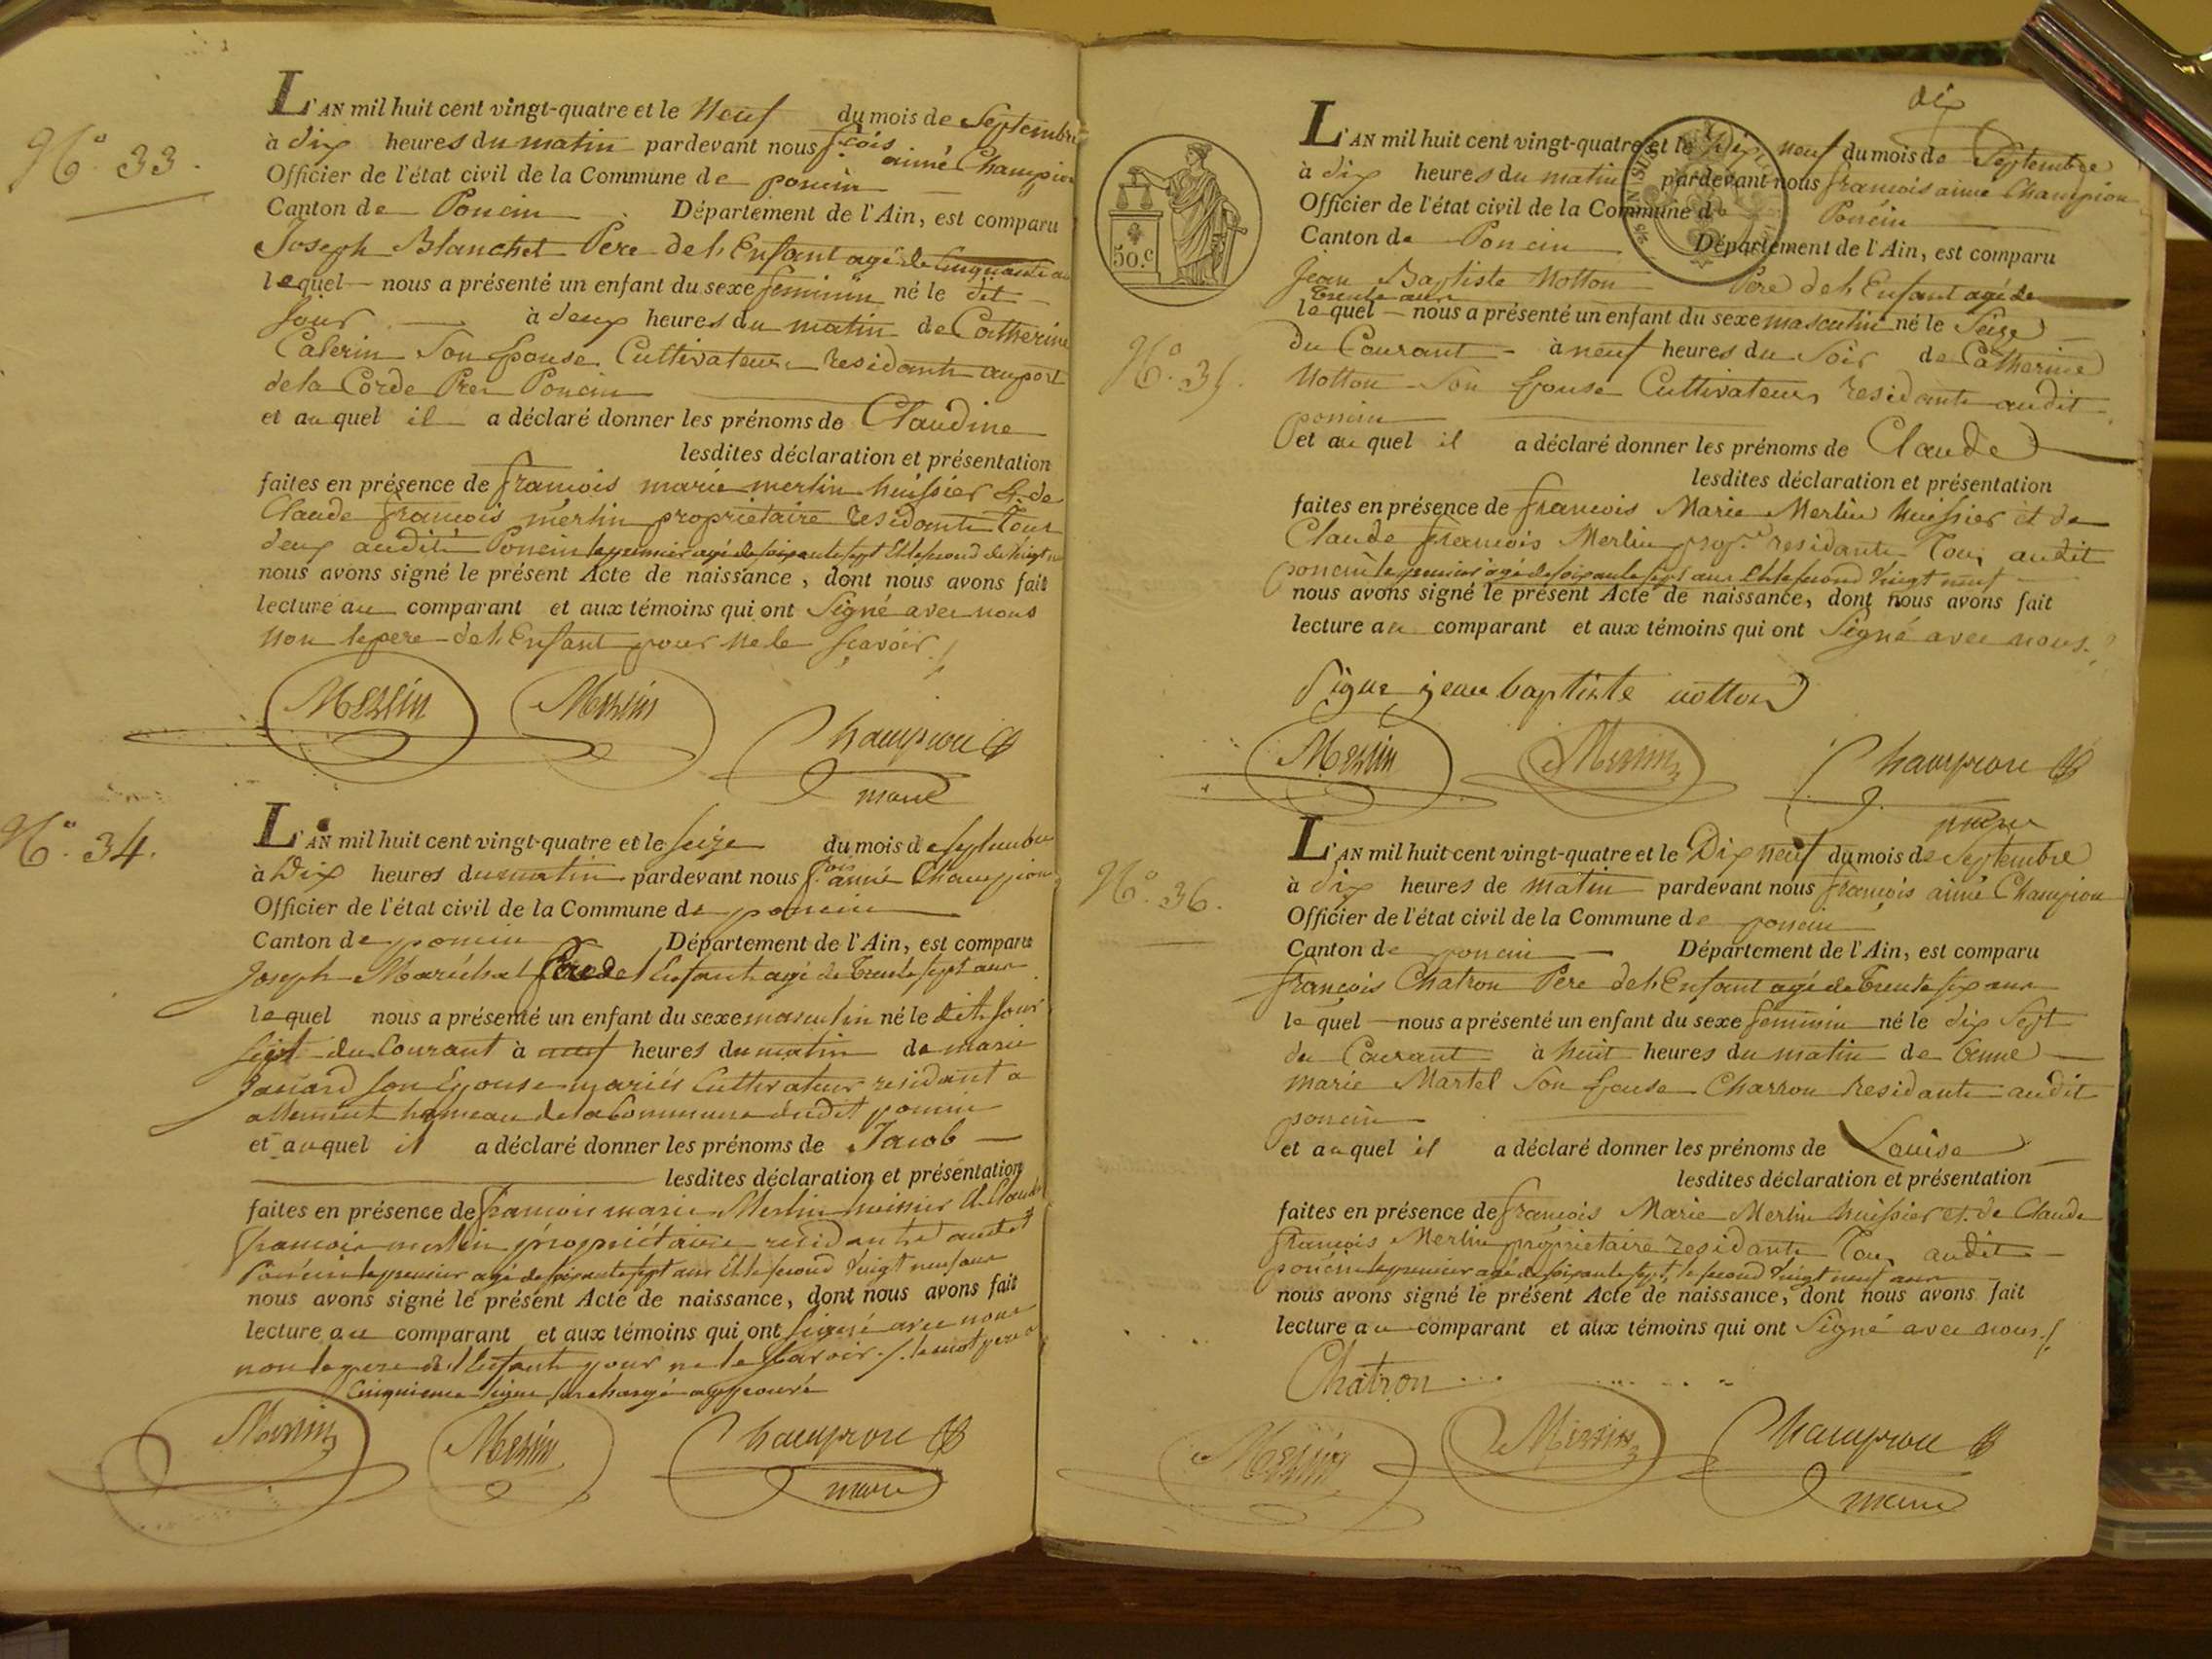 N° 33.
L'AN mil huit cent vingt-quatre et le Neuf du mois de Septembre
à dix heures du matin pardevant nous f.cois aimé Champion
Officier de l'état civil de la Commune de poncin
Canton de Poncin Département de l'Ain, est comparu
Joseph Blanchet Pere de l'Enfant agé de Cinquante an
lequel nous a présenté un enfant du sexe feminin né le dit
jour à deux heures du matin de Catherine
Caberin Son Epouse Cultivateurs residants au port
de la Corde Pres Poncin
et au quel il a déclaré donner les prénoms de Claudine
lesdites déclaration et présentation
faites en présence de francois marie merlin huissier & de
Claude francois merlin proprietaire residants Tous
deux audit Poncin le premier agé de soixante sept Et le second de vingt n
nous avons signé le présent Acte de naissance, dont nous avons fait
lecture au comparant et aux témoins qui ont Signé avec nous
non le pere de l'Enfant pour ne le sçavoir ./.
Merlin Merlin Champion
maire
N° 34.
L'AN mil huit cent vingt-quatre et le seize du mois de septembre
à Dix heures du matin pardevant nous f.ois aimé Champion
Officier de l'état civil de la Commune de poncin
Canton de poncin Département de l'Ain, est comparu
Joseph Maréchal Pere de l'Enfant agé de Trente sept ans
lequel nous a présenté un enfant du sexe masculin né le dit jour
du Courant à neuf heures du matin de marie
son Epouse mariés Cultivateur residant a
allement hameau de la Commune dudit poncin
et au quel il a déclaré donner les prénoms de Jacob
lesdites déclaration et présentation
faites en présence de francois marie Merlin huissier Et Claude
francois merlin propriétaire residants audit
Poncin le premier agé de soixante sept ans Et le second Vingt neuf ans
nous avons signé le présent Acte de naissance, dont nous avons fait
lecture au comparant et aux témoins qui ont signé avec nous
non le pere de l'Enfant pour ne le savoir ./. le mot pere a
Cinquieme ligne surchargé approuvé
Merlin Merlin Champion
maire
dix
50.c
N° 35.
L'AN mil huit cent vingt-quatre et le Dix neuf du mois de Septembre
à dix heures du matin pardevant nous francois aimé Champion
Officier de l'état civil de la Commune de Poncin
Canton de Poncin Département de l'Ain, est comparu
Jean Baptiste Notton Pere de l'Enfant agé de
trente ans
lequel nous a présenté un enfant du sexe masculin né le Seize
du Courant à neuf heures du Soir de Catherine
Notton Son Epouse Cultivateurs residants audit
poncin
et au quel il a déclaré donner les prénoms de Claude
lesdites déclaration et présentation
faites en présence de francois Marie Merlin huissier et de
Claude francois Merlin prop.re residants Tous audit
poncin le premier agé de soixante sept ans Et le second Vingt neuf
nous avons signé le présent Acte de naissance, dont nous avons fait
lecture au comparant et aux témoins qui ont Signé avec nous ./.
Signe jean baptiste notton
Merlin Merlin Champion
maire
N° 36.
L'AN mil huit cent vingt-quatre et le Dix neuf du mois de Septembre
à dix heures de matin pardevant nous francois aimé Champion
Officier de l'état civil de la Commune de poncin
Canton de poncin Département de l'Ain, est comparu
francois Chatron Pere de l'Enfant agé de trente six ans
le quel nous a présenté un enfant du sexe feminin né le dix Sept
du Courant à huit heures du matin de Anne
marie Martel Son Epouse Charron residants audit
poncin
et au quel il a déclaré donner les prénoms de Louise
lesdites déclaration et présentation
faites en présence de francois Marie Merlin huissier et de Claude
francois Merlin proprietaire residants Tous audit
poncin le premier agé de soixante sept, le second Vingt neuf ans
nous avons signé le présent Acte de naissance, dont nous avons fait
lecture au comparant et aux témoins qui ont Signé avec nous ./.
Chatron
Merlin Merlin Champion
maire